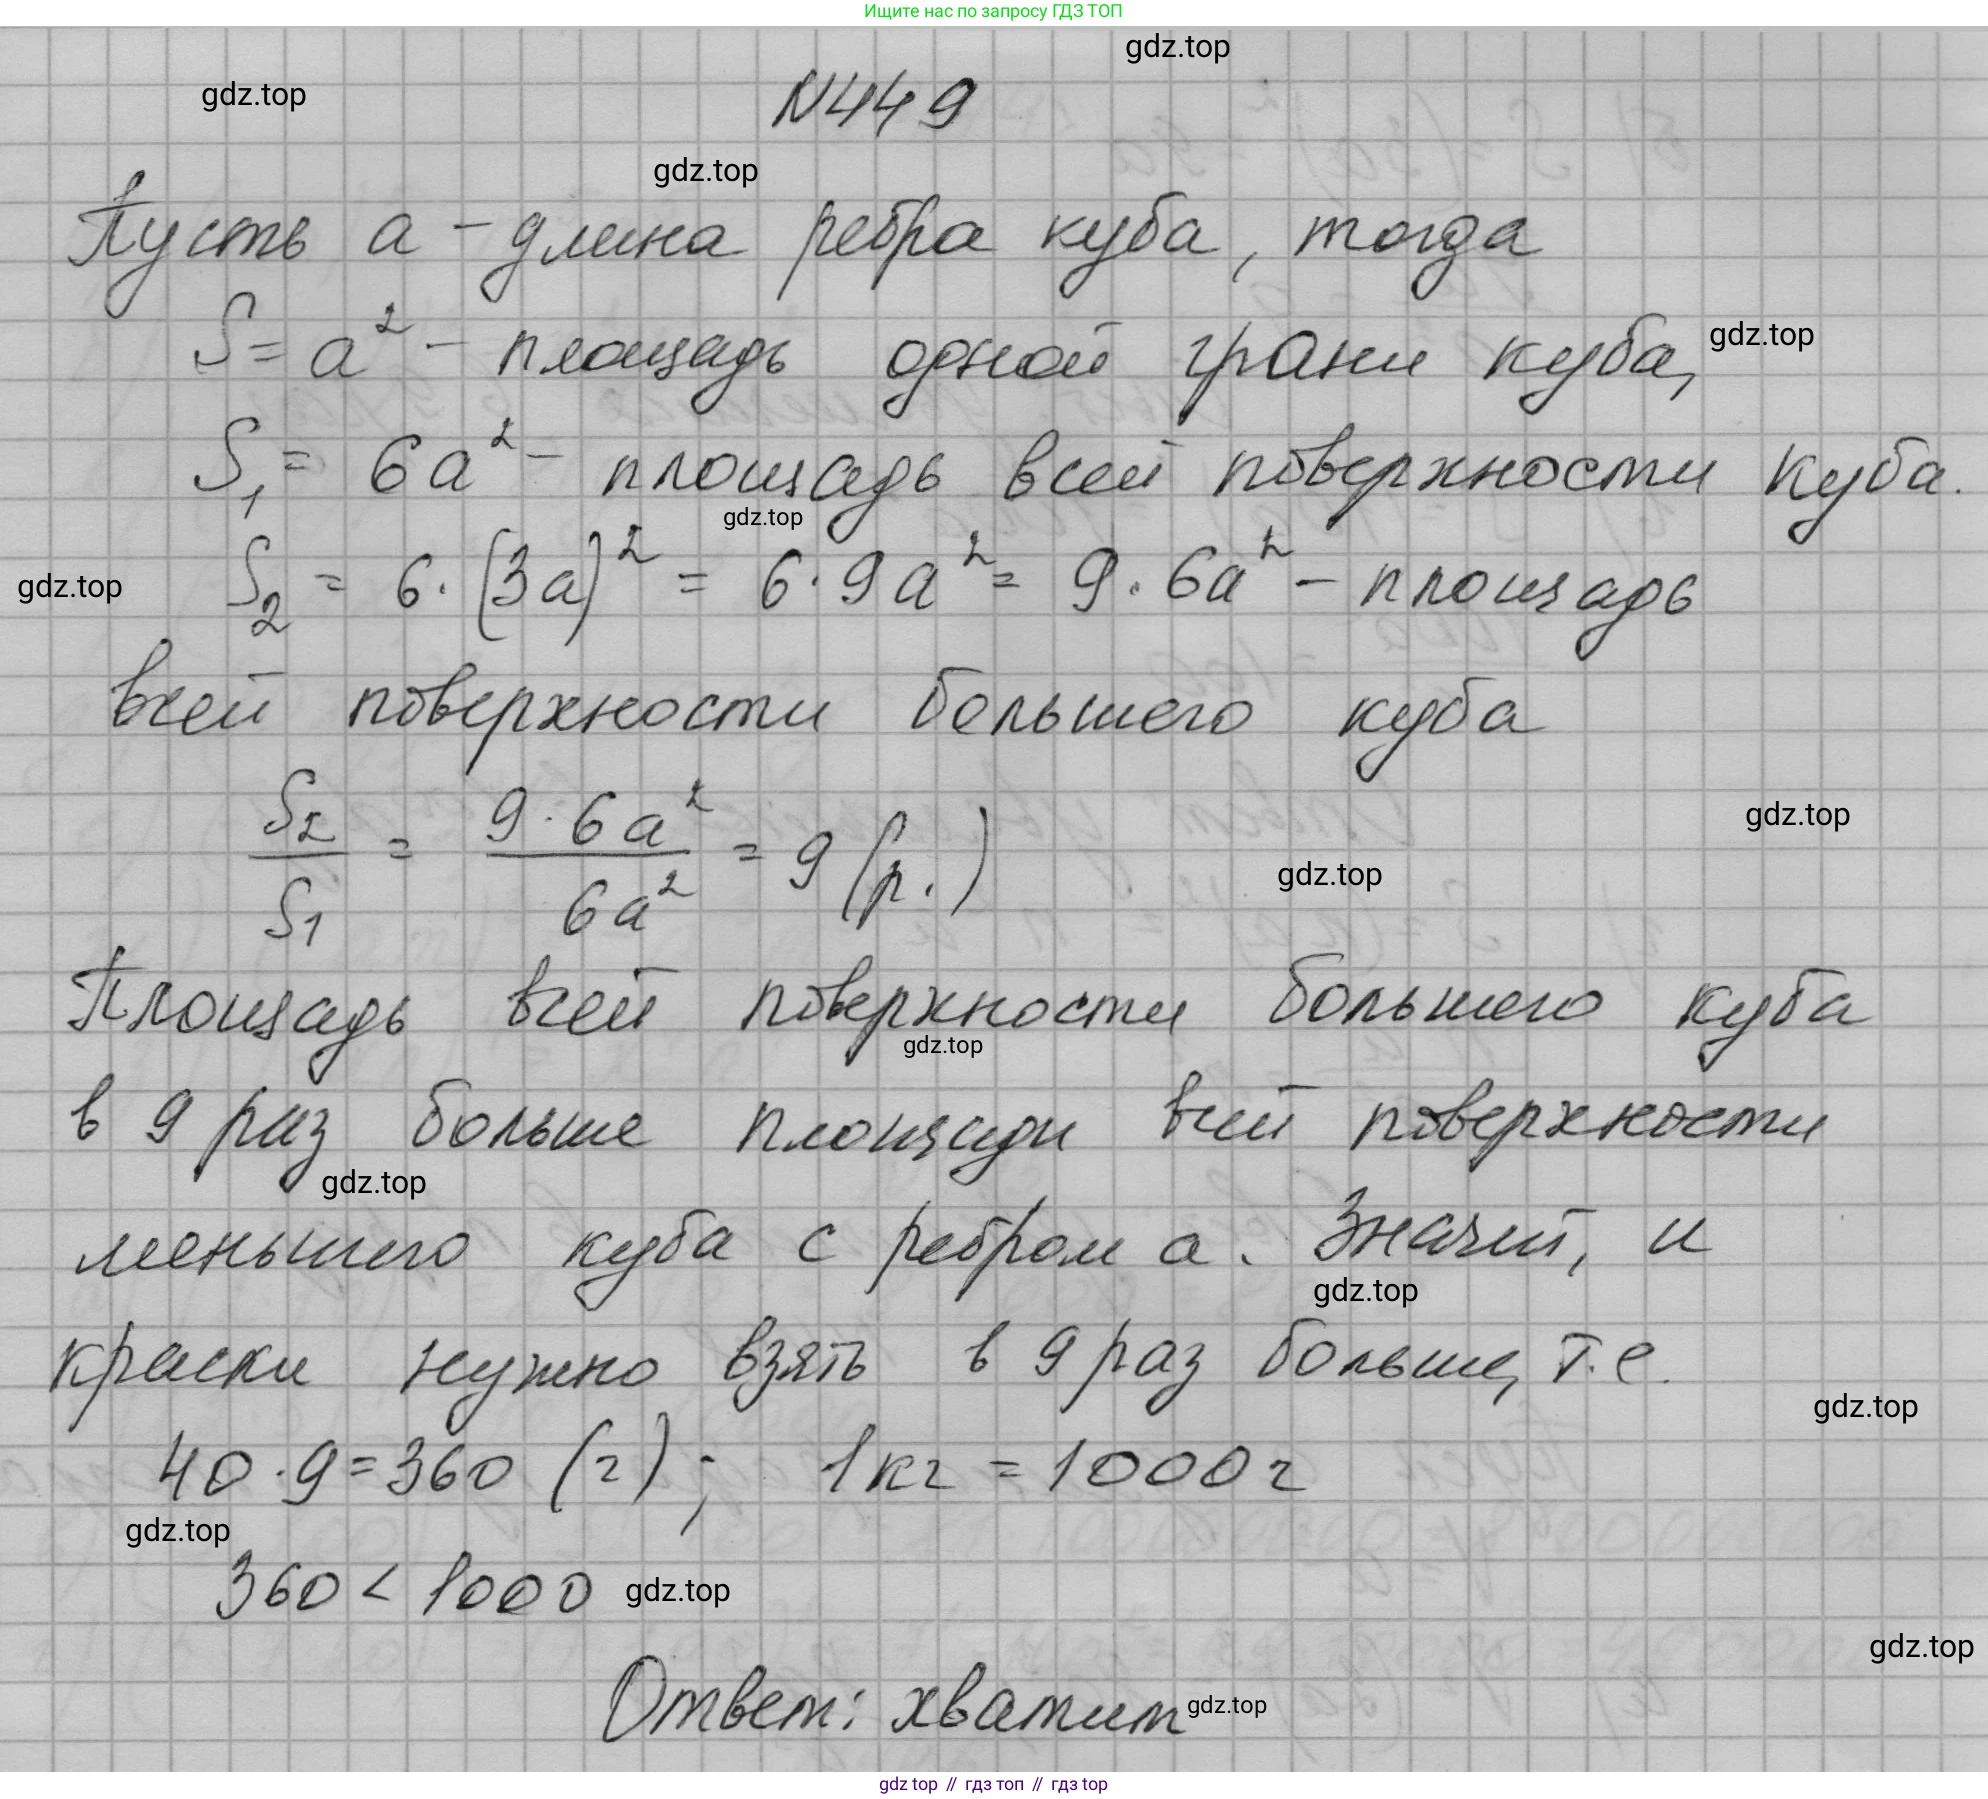 Ищите нас по запросу ГДЗ ТОП
gdz.top
gdz.top
N449
gdz.top
Пусть a - длина ребра куба, тогда
S = a² - площадь одной грани куба,
gdz.top
S₁ = 6a² - площадь всей поверхности куба.
gdz.top
S₂ = 6·(3a)² = 6·9a² = 9·6a² - площадь
gdz.top
всей поверхности большего куба
S₂/S₁ = 9·6a²/6a² = 9 (р.)
gdz.top
gdz.top
Площадь всей поверхности большего куба
gdz.top
в 9 раз больше площади всей поверхности
gdz.top
меньшего куба с ребром a. Значит, и
gdz.top
краски нужно взять в 9 раз больше, т.е.
gdz.top
40·9=360 (г); 1кг = 1000г
gdz.top
360 < 1000
gdz.top
gdz.top
Ответ: хватит
gdz.top
gdz top // гдз топ // gdz top